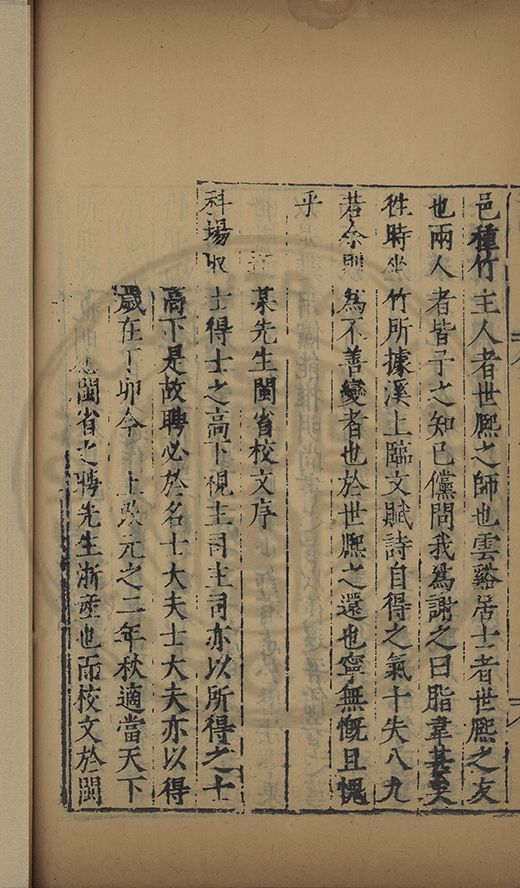 邑種竹主人者世熈之師也雲谿居士者世熈之友
也兩人者皆予之知已儻問我爲謝之曰脂韋甚矣
徃時坐竹所據溪上臨文賦詩自得之氣十失八九
若余則爲不善變者也於世熈之還也寧無慨且愧
乎
某先生閩省校文序
科場取士得士之高下視主司主司亦以所得之士
高下是故聘必於名士大夫士大夫亦以得
歲在丁卯今上改元之二年秋適當天下
閩省之聘先生浙産也而校文於閩